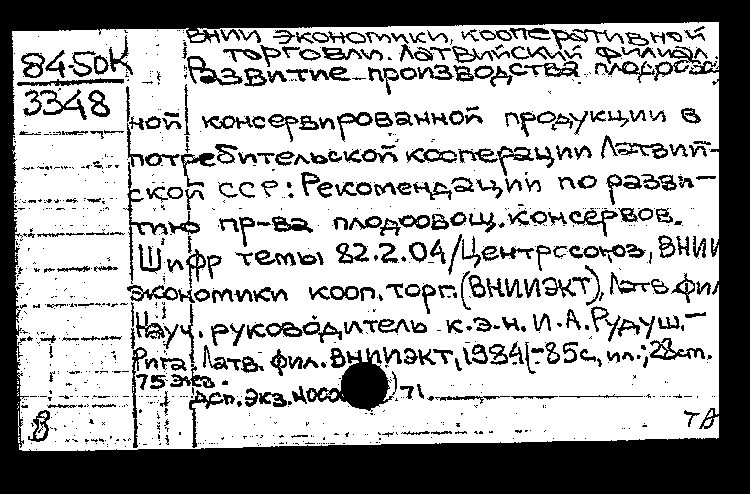 ВНИИ экономики, кооперативной
торговли. Латвийский филиал.
8450к
Развитие производства плодоово
3348
ной консервированной продукции в
потребительской кооперации Латвий-
ской ССР: Рекомендации по разви-
тию пр-ва плодоовощ. консервов.
Шифр темы 82.2.04/Центросоюз, ВНИИ
экономики кооп. торг. (ВНИИЭКТ), Латв. фил
Науч. руководитель к.э.н. И.А. Рудуш.-
Рига: Латв. фил. ВНИИЭКТ, 1984.-85с., ил.; 28см.
75 экз.
ДСП. Экз. N000 71.
В